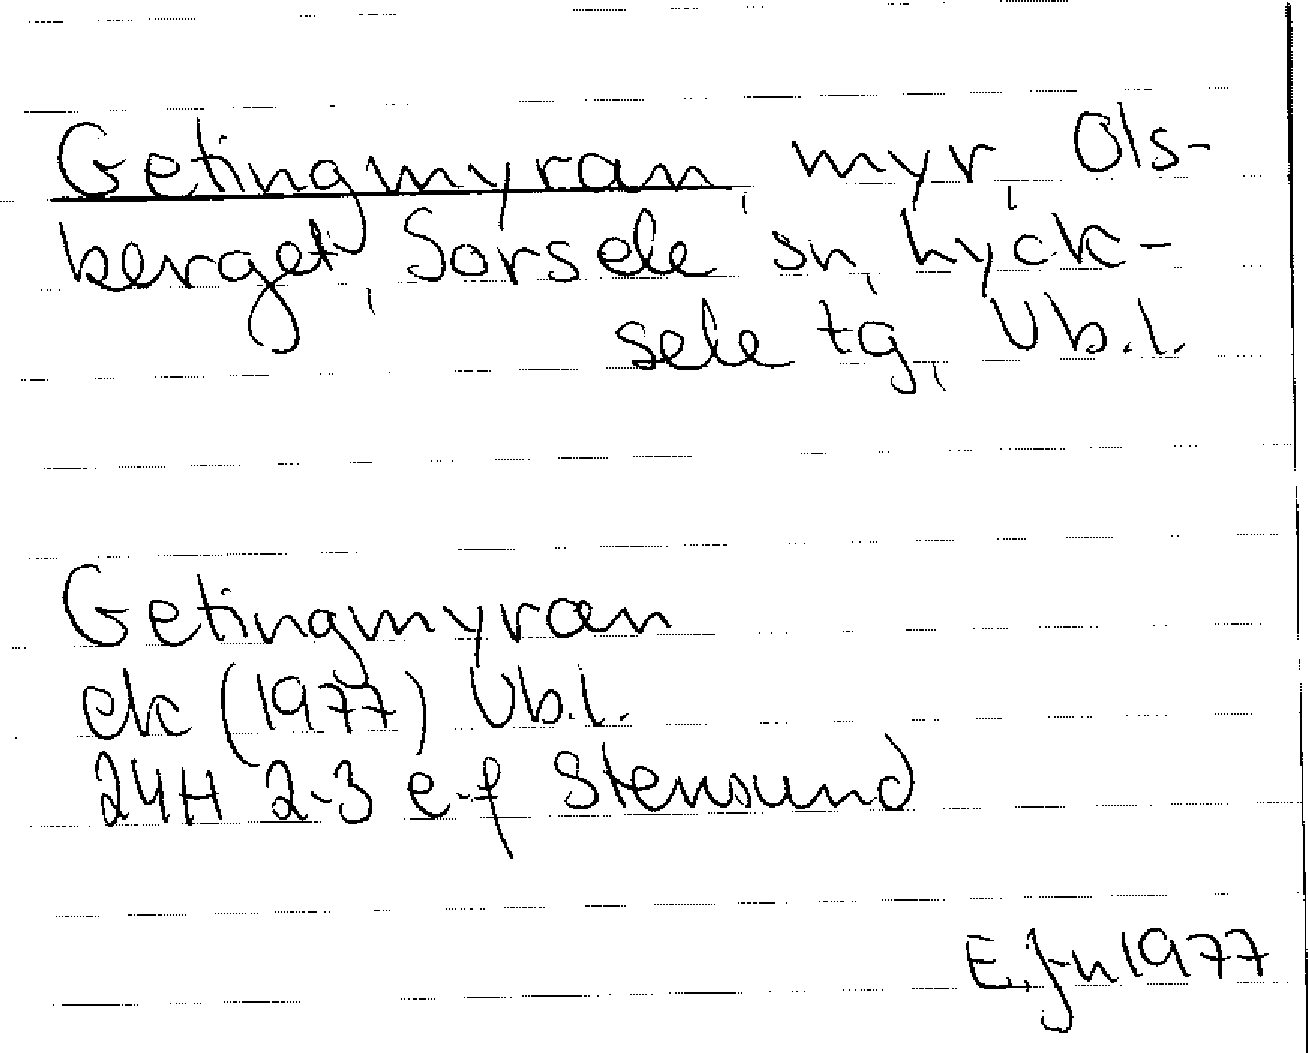 Getingmyran, myr, Ols-
berget, Sorsele sn, Lyck-
sele tg, Vb.l.
Getingmyran
ek (1977) Vb.l.
24H 2-3 e-f Stensund
E. Jn 1977